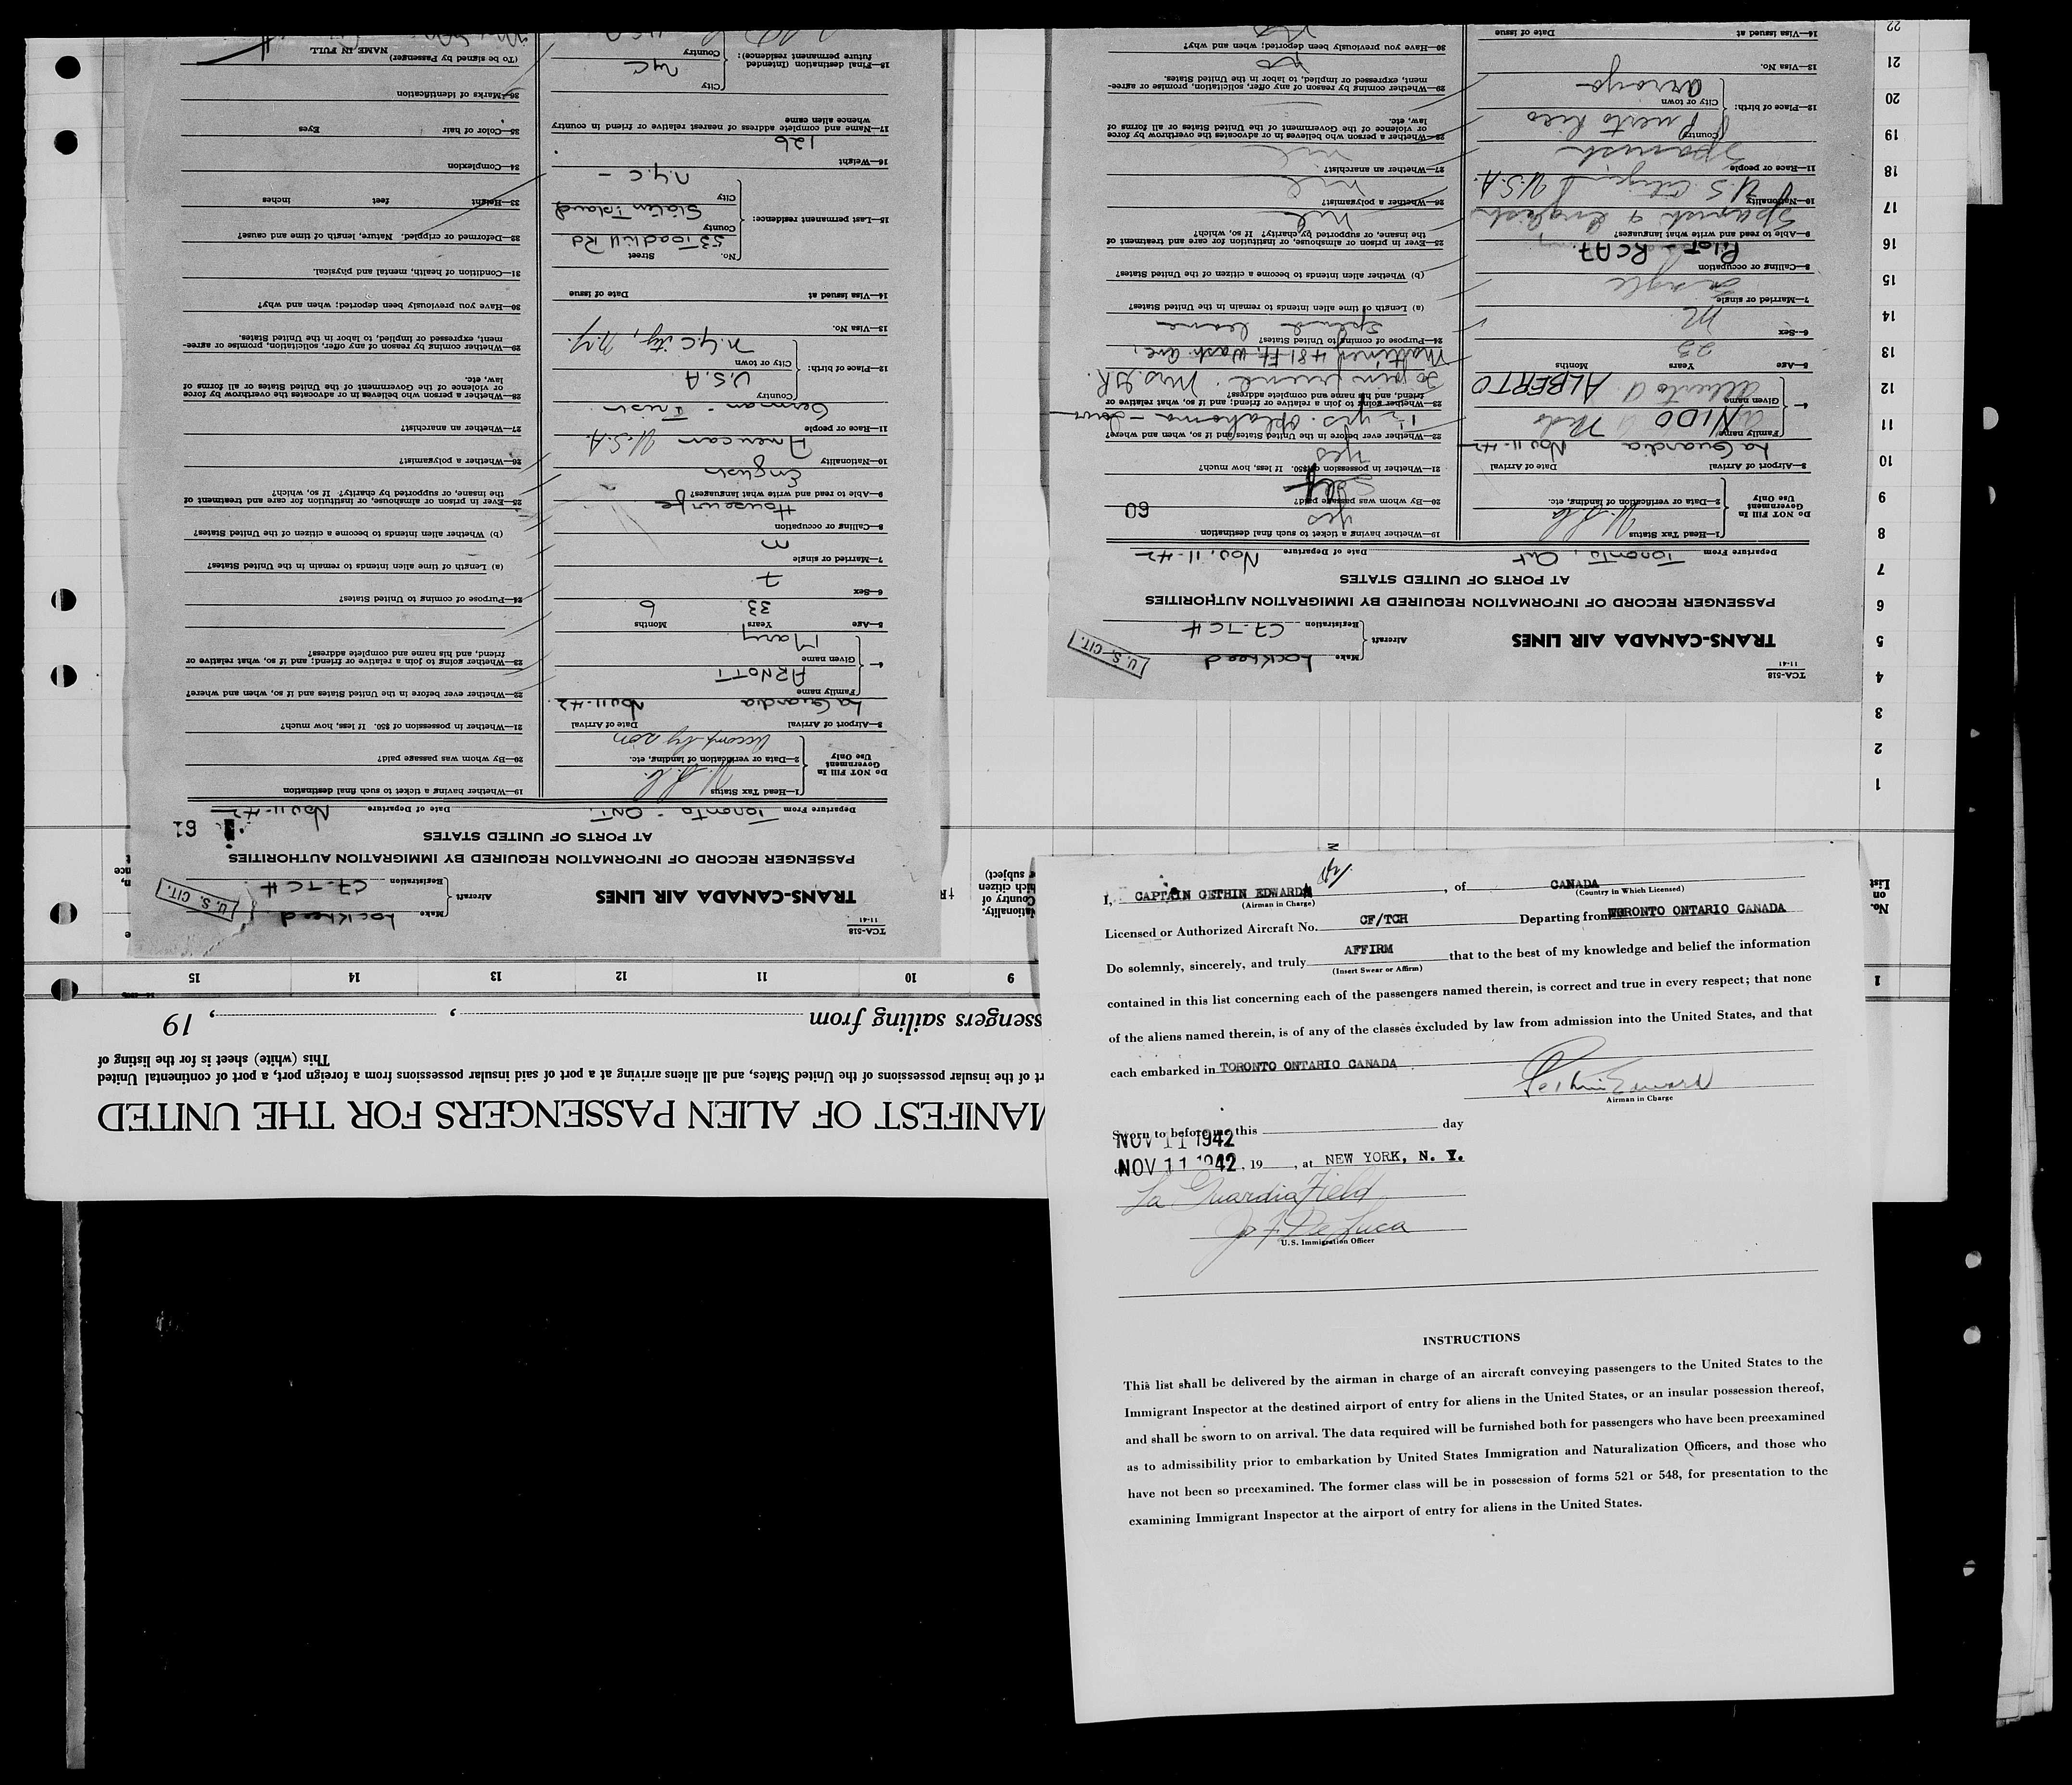 I, CAPTAIN GETHIN EDWARD, of CANADA
(Airman in Charge) (Country in Which Licensed)
Licensed or Authorized Aircraft No. CF/TCH Departing from TORONTO ONTARIO CANADA
Do solemnly, sincerely, and truly AFFIRM that to the best of my knowledge and belief the information
(Insert Swear or Affirm)
contained in this list concerning each of the passengers named therein, is correct and true in every respect; that none
of the aliens named therein, is of any of the classes excluded by law from admission into the United States, and that
each embarked in TORONTO ONTARIO CANADA
Gethin Edward
Airman in Charge
Sworn to before me this day
NOV 11 1942
NOV 11 1942, 19 , at NEW YORK, N. Y.
La Guardia Field
Jos F. De Luca
U.S. Immigration Officer
INSTRUCTIONS
This list shall be delivered by the airman in charge of an aircraft conveying passengers to the United States to the
Immigrant Inspector at the destined airport of entry for aliens in the United States, or an insular possession thereof,
and shall be sworn to on arrival. The data required will be furnished both for passengers who have been preexamined
as to admissibility prior to embarkation by United States Immigration and Naturalization Officers, and those who
have not been so preexamined. The former class will be in possession of forms 521 or 548, for presentation to the
examining Immigrant Inspector at the airport of entry for aliens in the United States.
MANIFEST OF ALIEN PASSENGERS FOR THE UNITED
rt of the insular possessions of the United States, and all aliens arriving at a port of said insular possessions from a foreign port, a port of continental United
This (white) sheet is for the listing of
ssengers sailing from , , 19
1 9 10 11 12 13 14 15
No. on List
1
2
3
4
5
6
7
8
9
10
11
12
13
14
15
16
17
18
19
20
21
22
TCA-518
11-41
TRANS-CANADA AIR LINES
Aircraft
Make Lockheed
Registration CF-TCH
U. S. CIT.
PASSENGER RECORD OF INFORMATION REQUIRED BY IMMIGRATION AUTHORITIES
AT PORTS OF UNITED STATES
Departure From Toronto, Ont Date of Departure Nov. 11-42
DO NOT FILL IN
Government
Use Only
1—Head Tax Status
2—Data or verification of landing, etc.
3—Airport of Arrival Date of Arrival
La Guardia Nov 11-42
4— Family name
NIDO
Given name
Alberto A ALBERTO
5—Age Years Months
23
6—Sex
M
7—Married or single
Single
8—Calling or occupation
Pilot - RCAF
9—Able to read and write what languages?
Spanish & English
10—Nationality
U.S. Citizen U.S.A.
11—Race or people
Spanish
12—Place of birth:
Country
Puerto Rico
City or town
Arroyo
13—Visa No.
14—Visa issued at Date of issue
19—Whether having a ticket to such final destination
yes
60
20—By whom was passage paid?
Self
21—Whether in possession of $50. If less, how much?
yes
22—Whether ever before in the United States and if so, when and where?
1½ yrs. Oklahoma -
23—Whether going to join a relative or friend; and if so, what relative or
friend, and his name and complete address?
To join friend. Mrs. J.R.
Martinez 481 Ft. Wash. Ave.,
24—Purpose of coming to United States?
Spend leave
(a) Length of time alien intends to remain in the United States?
(b) Whether alien intends to become a citizen of the United States?
25—Ever in prison or almshouse, or institution for care and treatment of
the insane, or supported by charity? If so, which?
nil
26—Whether a polygamist?
nil
27—Whether an anarchist?
nil
28—Whether a person who believes in or advocates the overthrow by force
or violence of the Government of the United States or all forms of
law, etc.
29—Whether coming by reason of any offer, solicitation, promise or agree-
ment, expressed or implied, to labor in the United States.
no
30—Have you previously been deported; when and why?
no
TCA-518
11-41
TRANS-CANADA AIR LINES
Aircraft
Make Lockheed
Registration CF-TCH
U. S. CIT.
PASSENGER RECORD OF INFORMATION REQUIRED BY IMMIGRATION AUTHORITIES
AT PORTS OF UNITED STATES
61
Departure From Toronto - ONT. Date of Departure Nov 11-42
DO NOT FILL IN
Government
Use Only
1—Head Tax Status
2—Data or verification of landing, etc.
Accomp by son
3—Airport of Arrival Date of Arrival
La Guardia Nov 11-42
4— Family name
ARNOTT
Given name
Mary
5—Age Years Months
33 6
6—Sex
F
7—Married or single
M
8—Calling or occupation
Housewife
9—Able to read and write what languages?
English
10—Nationality
American U.S.A.
11—Race or people
German - Irish
12—Place of birth:
Country
U.S.A
City or town
N.Y. City, N.Y.
13—Visa No.
14—Visa issued at Date of issue
15—Last permanent residence:
No. Street
53 Toadhill Rd
County
Staten Island
City
N.Y.C -
16—Weight
126
17—Name and complete address of nearest relative or friend in country
whence alien came
18—Final destination (Intended
future permanent residence):
City
NYC
Country
USA
19—Whether having a ticket to such final destination
20—By whom was passage paid?
21—Whether in possession of $50. If less, how much?
22—Whether ever before in the United States and if so, when and where?
23—Whether going to join a relative or friend; and if so, what relative or
friend, and his name and complete address?
24—Purpose of coming to United States?
(a) Length of time alien intends to remain in the United States?
(b) Whether alien intends to become a citizen of the United States?
25—Ever in prison or almshouse, or institution for care and treatment of
the insane, or supported by charity? If so, which?
26—Whether a polygamist?
27—Whether an anarchist?
28—Whether a person who believes in or advocates the overthrow by force
or violence of the Government of the United States or all forms of
law, etc.
29—Whether coming by reason of any offer, solicitation, promise or agree-
ment, expressed or implied, to labor in the United States.
30—Have you previously been deported; when and why?
31—Condition of health, mental and physical.
32—Deformed or crippled. Nature, length of time and cause?
33—Height feet inches
34—Complexion
35—Color of hair Eyes
36—Marks of identification
(To be signed by Passenger)
NAME IN FULL